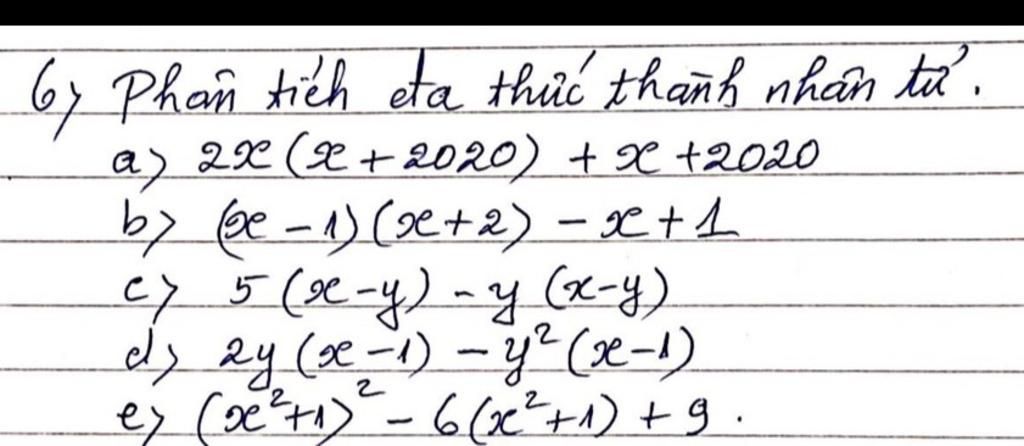 6) Phân tích đa thức thành nhân tử.
a) 2x(x+2020) + x +2020
b) (x-1)(x+2) - x+1
c) 5(x-y) - y(x-y)
d) 2y(x-1) - y²(x-1)
e) (x²+1)² - 6(x²+1) + 9.